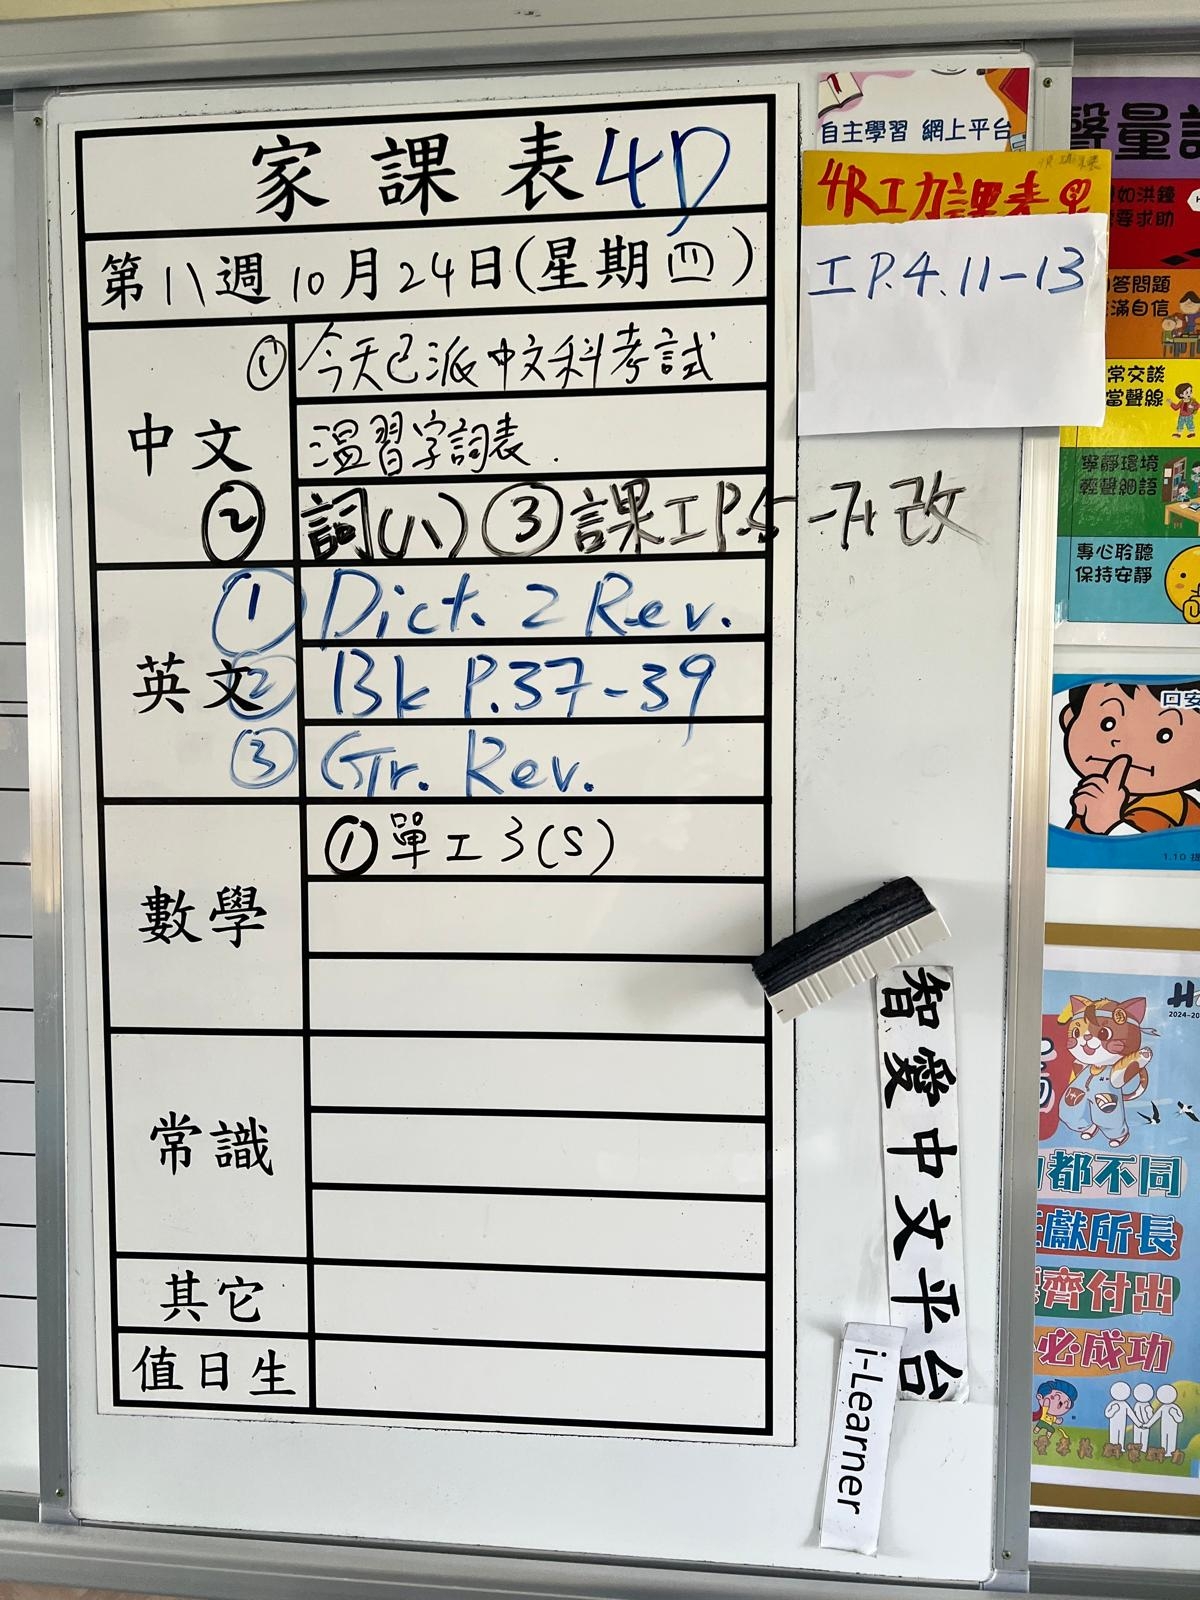 家課表4D
第八週10月24日(星期四)
中文
① 今天已派中文科考試
溫習字詞表.
② 詞(八) ③ 課工P.5-7+改
英文
① Dict. 2 Rev.
② Bk P.37-39
③ Gr. Rev.
數學
① 單工3(S)
常識
其它
值日生
自主學習 網上平台
工P.4.11-13
智愛中文平台
i-Learner
聲量
如洪鐘
要求助
答問題
滿自信
常交談
當聲線
寧靜環境
輕聲細語
專心聆聽
保持安靜
口安
1.10
2024-20
都不同
獻所長
齊付出
必成功